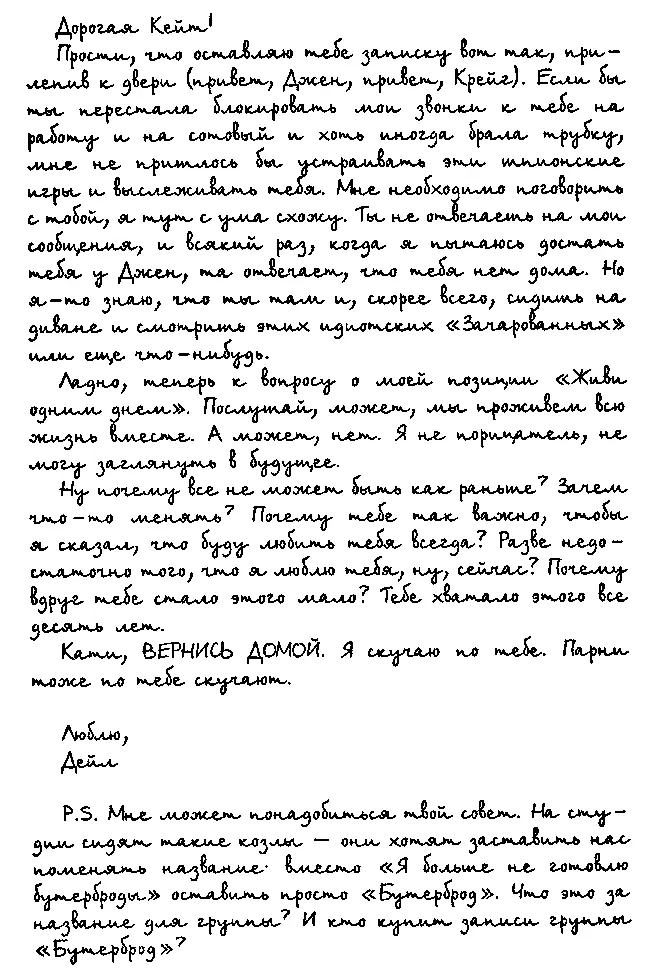 Дорогая Кейт!
Прости, что оставляю тебе записку вот так, при-
лепив к двери (привет, Джен, привет, Крейг). Если бы
ты перестала блокировать мои звонки к тебе на
работу и на сотовый и хоть иногда брала трубку,
мне не пришлось бы устраивать эти шпионские
игры и выслеживать тебя. Мне необходимо поговорить
с тобой, я тут с ума схожу. Ты не отвечаешь на мои
сообщения, и всякий раз, когда я пытаюсь достать
тебя у Джен, та отвечает, что тебя нет дома. Но
я-то знаю, что ты там и, скорее всего, сидишь на
диване и смотришь этих идиотских «Зачарованных»
или еще что-нибудь.
Ладно, теперь к вопросу о моей позиции «Живи
одним днем». Послушай, может, мы проживем всю
жизнь вместе. А может, нет. Я не прорицатель, не
могу заглянуть в будущее.
Ну почему все не может быть как раньше? Зачем
что-то менять? Почему тебе так важно, чтобы
я сказал, что буду любить тебя всегда? Разве недо-
статочно того, что я люблю тебя, ну, сейчас? Почему
вдруг тебе стало этого мало? Тебе хватало этого все
десять лет.
Кати, ВЕРНИСЬ ДОМОЙ. Я скучаю по тебе. Парни
тоже по тебе скучают.
Люблю,
Дейл
P.S. Мне может понадобиться твой совет. На сту-
дии сидят такие козлы — они хотят заставить нас
поменять название: вместо «Я больше не готовлю
бутерброды» оставить просто «Бутерброд». Что это за
название для группы? И кто купит записи группы
«Бутерброд»?